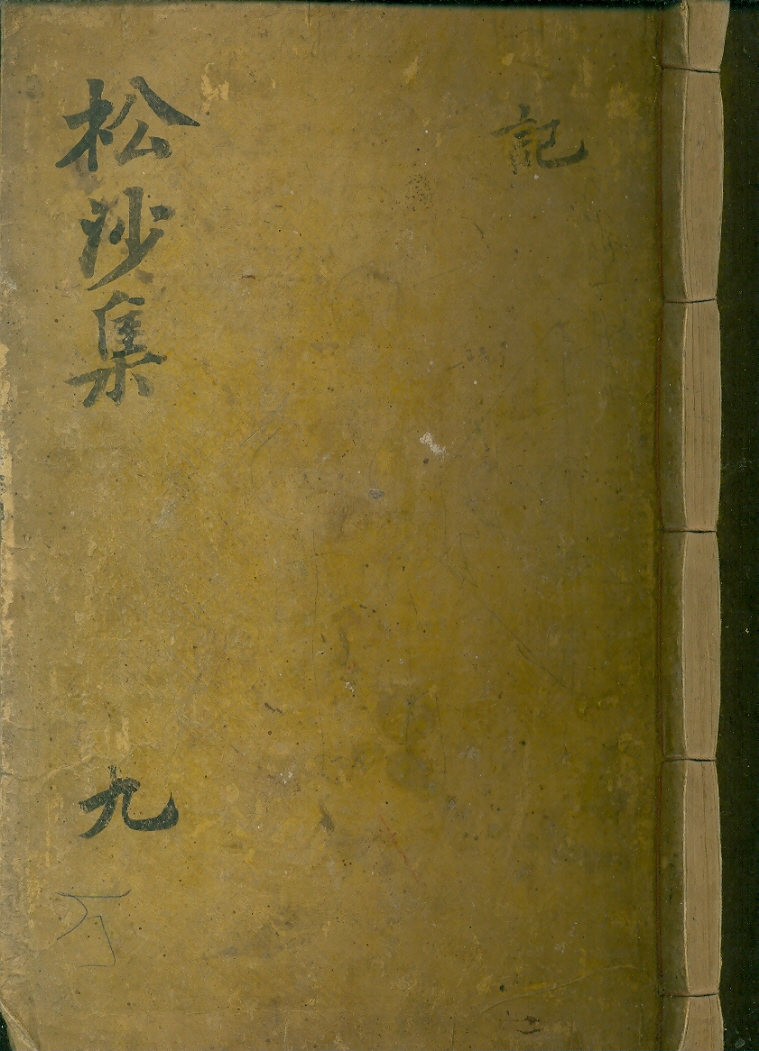 記
松沙集
九